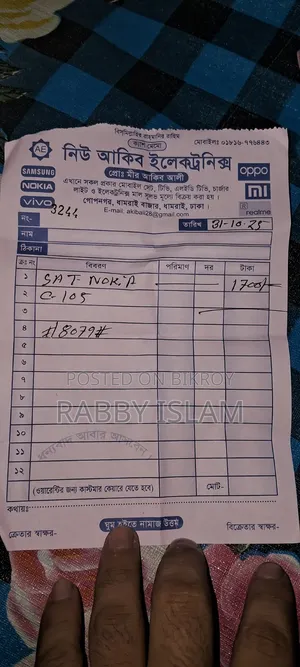 বিসমিল্লাহির রাহমানির রাহিম
ক্যাশ মেমো
মোবাইলঃ ০১৮১৬-৭৭৬৪৪৩
AE
নিউ আকিব ইলেকট্রনিক্স
প্রোঃ মীর আকিব আলী
SAMSUNG
NOKIA
vivo
oppo
mi
realme
এখানে সকল প্রকার মোবাইল সেট, টিভি, এলইডি টিভি, চার্জার
লাইট ও ইলেকট্রনিক্স মাল সুলভ মূল্যে বিক্রয় করা হয়।
গোপনগর, ধামরাই বাজার, ধামরাই, ঢাকা।
E-mail: akibali28@gmail.com
নং- 3244
তারিখ 31-10-25
নাম
ঠিকানা
ক্রঃ নং বিবরণ পরিমাণ দর টাকা
১ SAT NOKIA 1700/-
২ C-105
৩
৪ #18079#
৫
৬
৭
৮
৯
১০
১১
১২
POSTED ON BIKROY
RABBY ISLAM
ধন্যবাদ আবার আসবেন
(ওয়ারেন্টির জন্য কাস্টমার কেয়ারে যেতে হবে) মোট-
কথায়ঃ
ক্রেতার স্বাক্ষর- ঘুম হইতে নামাজ উত্তম বিক্রেতার স্বাক্ষর-